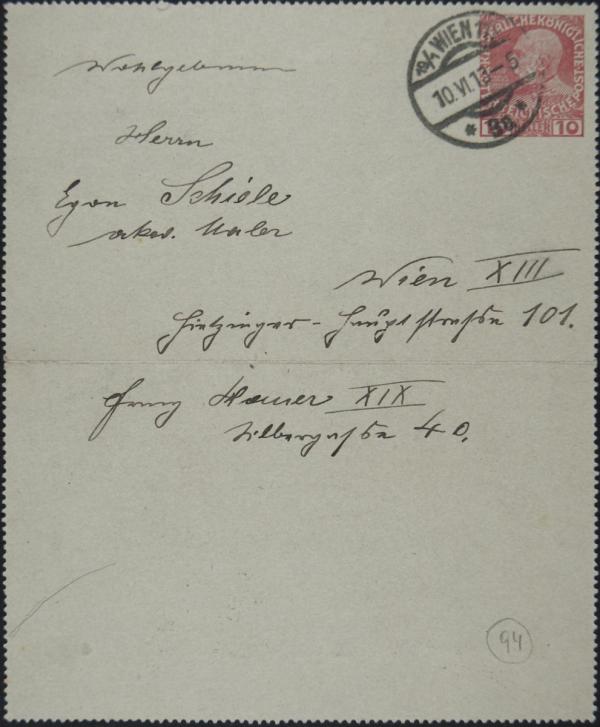 Wohlgeboren
Herrn
Egon Schiele
akad. Maler
Wien XIII
Hietzinger-Hauptstraße 101.
Franz Hauer XIX
Silbergasse 40.
WIEN
10.VI.13-5
10
94